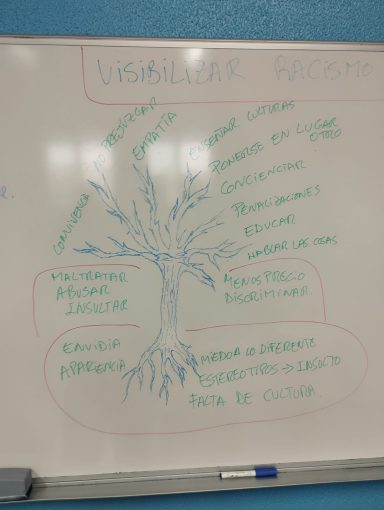 VISIBILIZAR RACISMO
CONVIVENCIA
NO PREJUZGAR
EMPATÍA
ENSEÑAR CULTURAS
PONERSE EN LUGAR
OTRO
CONCIENCIAR
PENALIZACIONES
EDUCAR
HABLAR LAS COSAS
MALTRATAR
ABUSAR
INSULTAR
MENOSPRECIO
DISCRIMINAR.
ENVIDIA
APARIENCIA
MIEDO A LO DIFERENTE
ESTEREOTIPOS → INSULTO
FALTA DE CULTURA.